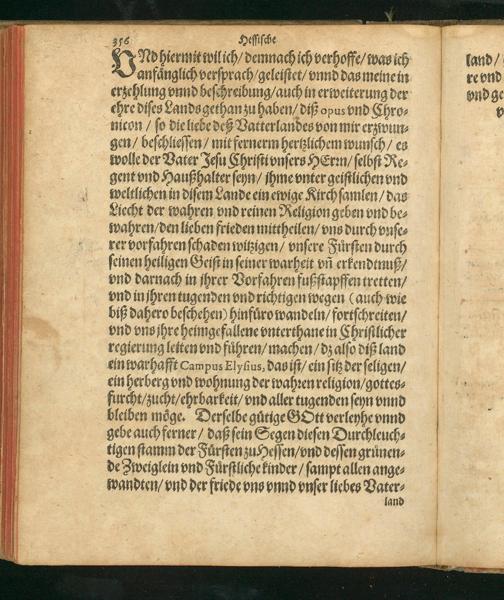 356 Hessische
VNd hiermit wil ich/ demnach ich verhoffe/ was ich
anfänglich versprach/ geleistet/ vnnd das meine in
erzehlung vnnd beschreibung/ auch in erweiterung der
ehre dises Lands gethan zu haben/ diß opus vnd Chro-
nicon/ so die liebe deß Vatterlandes von mir erzwun-
gen/ beschliessen/ mit fernerm hertzlichem wunsch/ es
wolle der Vater Jesu Christi vnsers HErrn/ selbst Re-
gent vnd Haußhalter seyn/ ihme vnter geistlichen vnd
weltlichen in disem Lande ein ewige Kirch samlen/ das
Liecht der wahren vnd reinen Religion geben vnd be-
wahren/ den lieben frieden mittheilen/ vns durch vnse-
rer vorfahren schaden witzigen/ vnsere Fürsten durch
seinen heiligen Geist in seiner warheit vñ erkendtnuß/
vnd darnach in ihrer Vorfahren fußstapffen tretten/
vnd in ihren tugenden vnd richtigen wegen (auch wie
biß dahero beschehen) hinfüro wandeln/ fortschreiten/
vnd vns ihre heimgefallene vnterthane in Christlicher
regierung leiten vnd führen/ machen/ dz also diß land
ein warhafft Campus Elysius, das ist/ ein sitz der seligen/
ein herberg vnd wohnung der wahren religion/ gottes-
furcht/ zucht/ ehrbarkeit/ vnd aller tugenden seyn vnnd
bleiben möge. Derselbe gütige GOtt verleyhe vnnd
gebe auch ferner/ daß sein Segen diesen Durchleuch-
tigen stamm der Fürsten zu Hessen/ vnd dessen grünen-
de Zweiglein vnd Fürstliche kinder/ sampt allen ange-
wandten/ vnd der friede vns vnnd vnser liebes Vater-
land
land/
re vnd
vnd ge